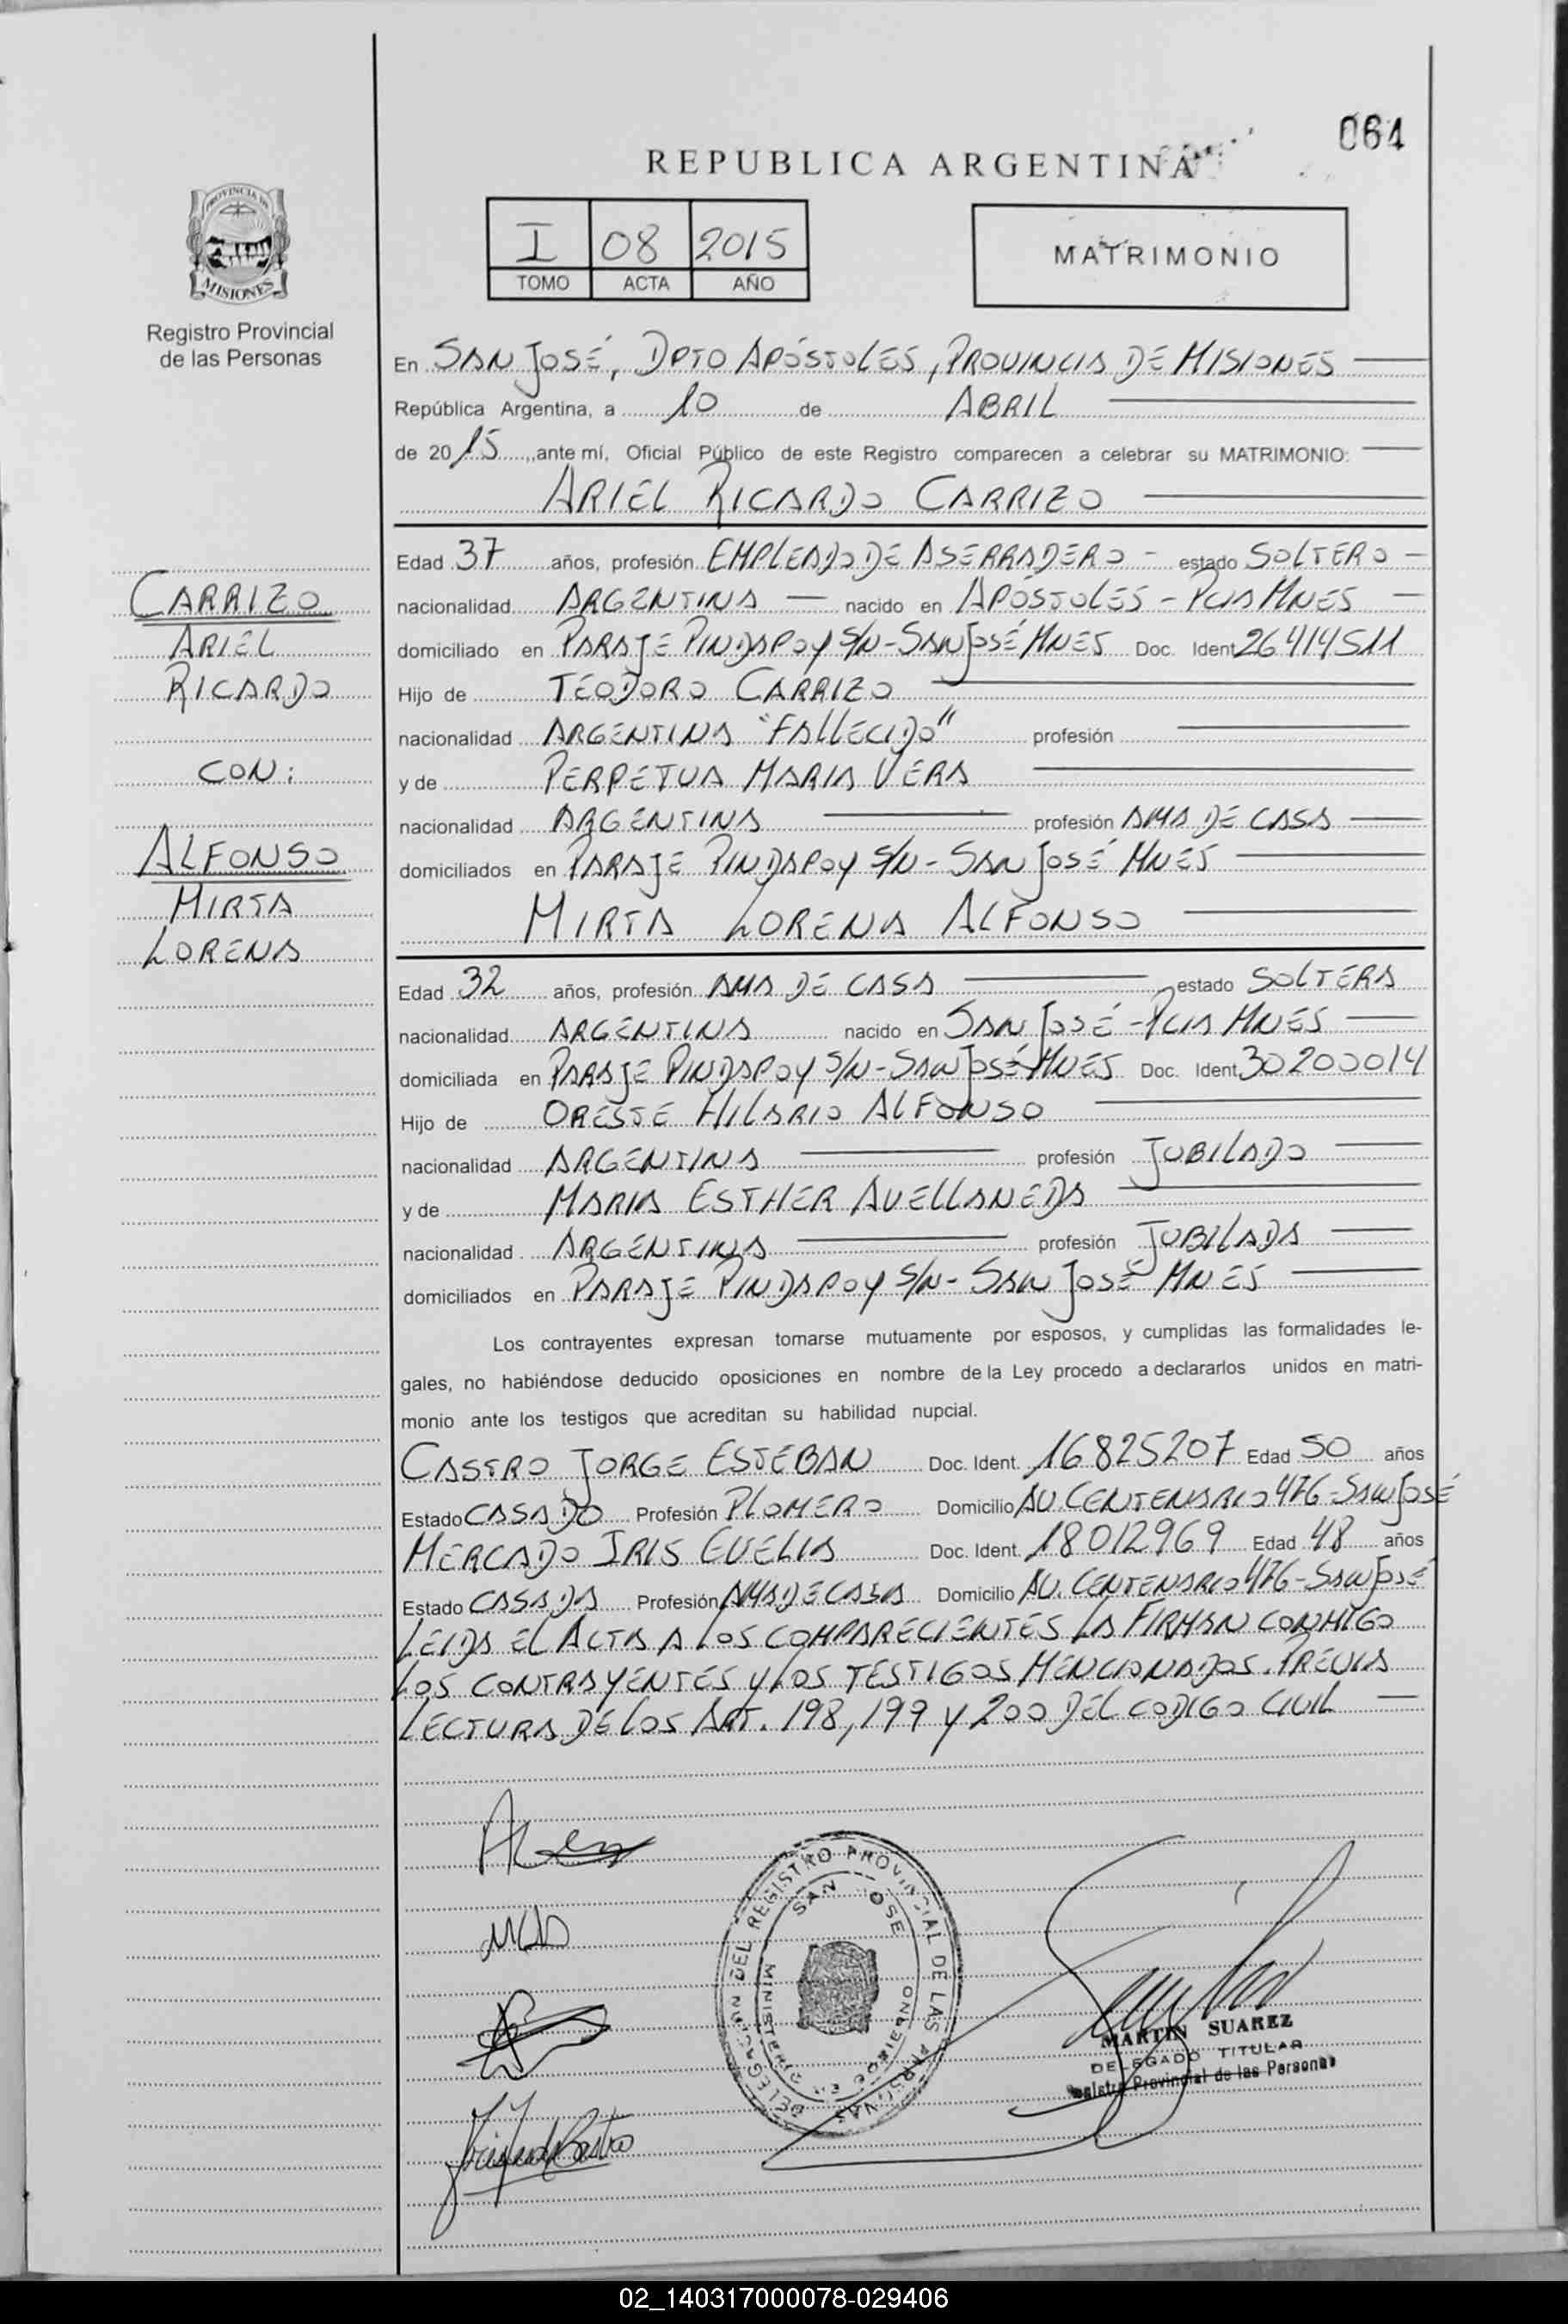 064
REPUBLICA ARGENTINA
PROVINCIA DE
MISIONES
Registro Provincial
de las Personas
I 08 2015
TOMO ACTA AÑO
MATRIMONIO
En SAN JOSÉ, DPTO APÓSTOLES, PROVINCIA DE MISIONES
República Argentina, a 10 de ABRIL
de 2015, ante mí, Oficial Público de este Registro comparecen a celebrar su MATRIMONIO:
ARIEL RICARDO CARRIZO
CARRIZO
ARIEL
RICARDO
CON:
ALFONSO
MIRTA
LORENA
Edad 37 años, profesión EMPLEADO DE ASERRADERO - estado SOLTERO -
nacionalidad ARGENTINA — nacido en APÓSTOLES - PCIA MNES —
domiciliado en PARAJE PINDAPOY S/N - SAN JOSÉ MNES Doc. Ident 26414511
Hijo de TEODORO CARRIZO
nacionalidad ARGENTINA "FALLECIDO" profesión
y de PERPETUA MARIA VERA
nacionalidad ARGENTINA profesión AMA DE CASA
domiciliados en PARAJE PINDAPOY S/N - SAN JOSÉ MNES
MIRTA LORENA ALFONSO
Edad 32 años, profesión AMA DE CASA estado SOLTERA
nacionalidad ARGENTINA nacido en SAN JOSÉ - PCIA MNES
domiciliada en PARAJE PINDAPOY S/N - SAN JOSÉ MNES Doc. Ident 30200014
Hijo de ORESTE HILARIO ALFONSO
nacionalidad ARGENTINA profesión JUBILADO
y de MARIA ESTHER AVELLANEDA
nacionalidad ARGENTINA profesión JUBILADA
domiciliados en PARAJE PINDAPOY S/N - SAN JOSÉ MNES
Los contrayentes expresan tomarse mutuamente por esposos, y cumplidas las formalidades le-
gales, no habiéndose deducido oposiciones en nombre de la Ley procedo a declararlos unidos en matri-
monio ante los testigos que acreditan su habilidad nupcial.
CASTRO JORGE ESTEBAN Doc. Ident. 16825207 Edad 50 años
Estado CASADO Profesión PLOMERO Domicilio AV. CENTENARIO 476 - SAN JOSÉ
MERCADO IRIS EVELIA Doc. Ident. 18012969 Edad 48 años
Estado CASADA Profesión AMA DE CASA Domicilio AV. CENTENARIO 476 - SAN JOSÉ
LEIDA EL ACTA A LOS COMPARECIENTES LA FIRMAN CONMIGO
LOS CONTRAYENTES Y LOS TESTIGOS MENCIONADOS. PREVIA
LECTURA DE LOS ART. 198, 199 Y 200 DEL CODIGO CIVIL —
DELEGACION DEL REGISTRO PROVINCIAL DE LAS PERSONAS
SAN JOSE
MINISTERIO DE GOBIERNO
MARTIN SUAREZ
DELEGADO TITULAR
Registro Provincial de las Personas
02_140317000078-029406